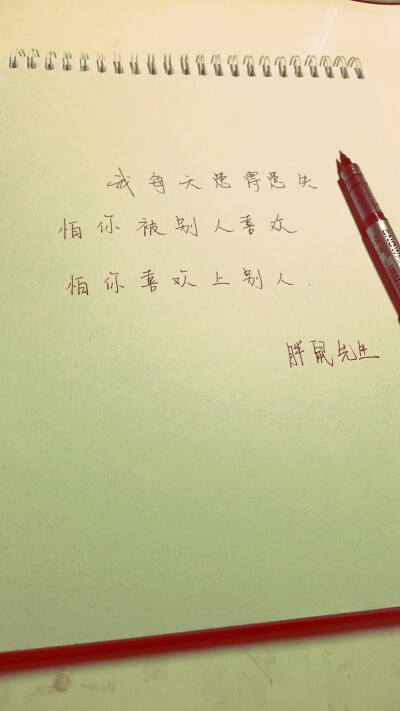 我每天患得患失
怕你被别人喜欢
怕你喜欢上别人.
胖鼠先生